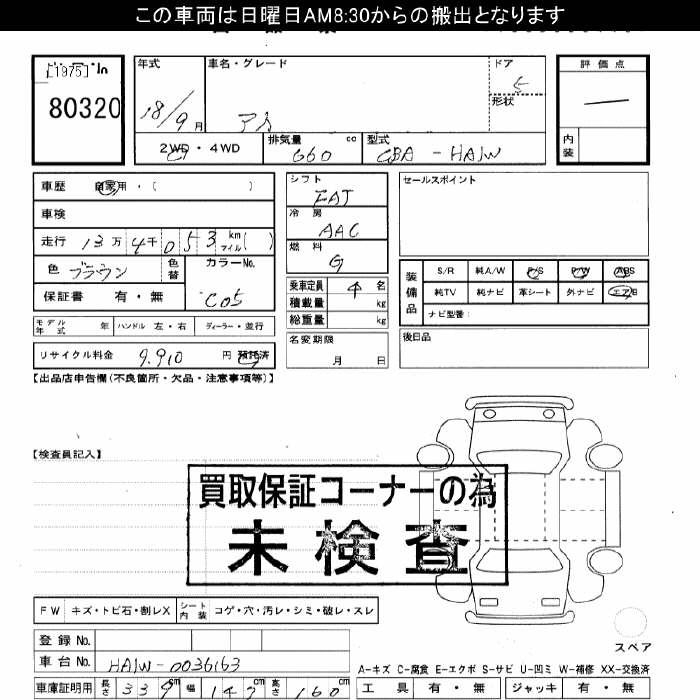 この車両は日曜日AM8:30からの搬出となります
[1975]
80320
年式
18/9月
車名・グレード
アイ
ドア
5
形状
評価点
—
内装
2WD・4WD
排気量 660 cc
型式 CBA - HA1W
車歴 自家用・( )
車検
走行 13万4千053 km マイル( )
色 ブラウン 色替
カラーNo.
C05
保証書 有・無
モデル年式 年 ハンドル 左・右 ディーラー・並行
リサイクル料金 9,910 円 預託済
シフト
FAT
冷房
AAC
燃料
G
乗車定員 4 名
積載量 kg
総重量 kg
名変期限
月 日
セールスポイント
装備品
S/R 純A/W P/S P/W ABS
純TV 純ナビ 革シート 外ナビ エアB
ナビ型番:
後日品
【出品店申告欄(不良箇所・欠品・注意事項等)】
【検査員記入】
買取保証コーナーの為
未検査
FW キズ・トビ石・割レX シート内装 コゲ・穴・汚レ・シミ・破レ・スレ
登録No.
車台No. HA1W-0036163
車庫証明用 長さ 339cm 幅 147cm 高さ 160cm
スペア
A-キズ C-腐食 E-エクボ S-サビ U-凹ミ W-補修 XX-交換済
工具 有・無 ジャッキ 有・無